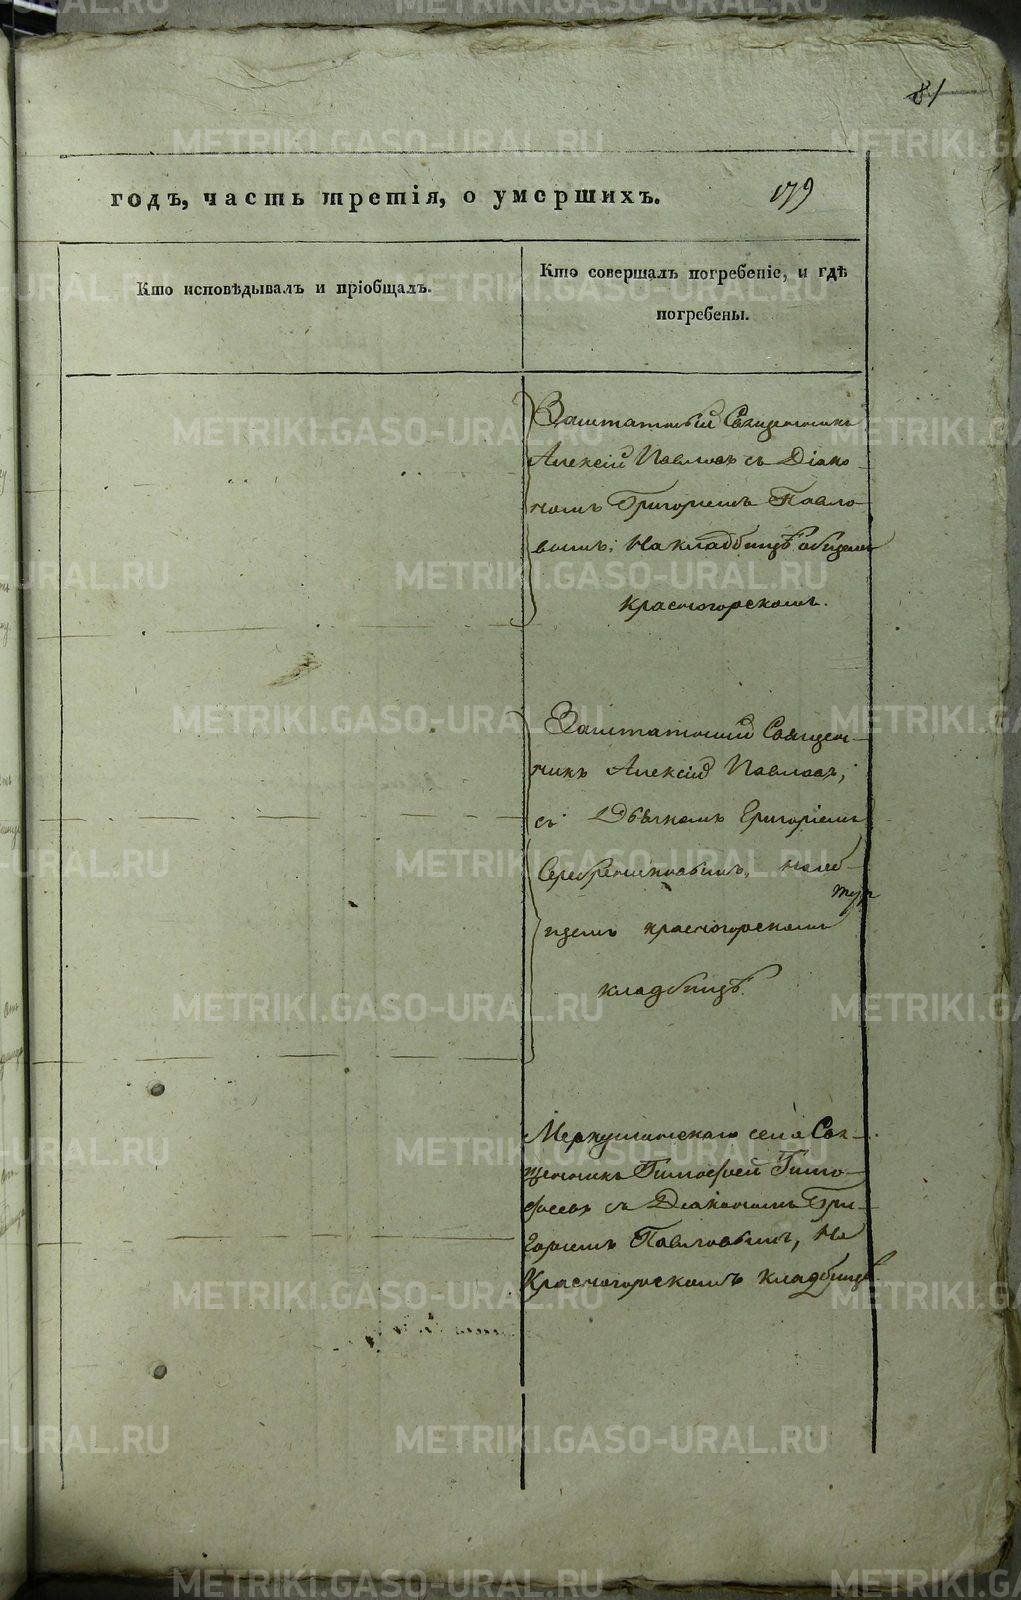 81
годъ, часть третія, о умершихъ.
179
Кто исповѣдывалъ и пріобщалъ.
Кто совершалъ погребеніе, и гдѣ
погребены.
Заштатный Священникъ
Алексій Павловъ съ Діако-
номъ Григоріемъ Павло-
вымъ, на кладбищѣ общемъ
Красногорскомъ.
Заштатный Священ-
никъ Алексій Павловъ,
съ Дьячкомъ Григоріемъ
Серебренниковымъ,
красногорскомъ
кладбищѣ.
Меркушинскаго села Свя-
щенникъ Тимофей Тимо-
феевъ съ Діакономъ Гри-
горіемъ Павловымъ, на
Красногорскомъ кладбищѣ
METRIKI.GASO-URAL.RU